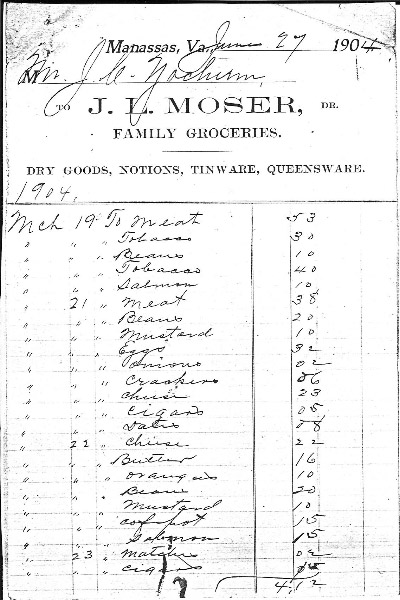 Manassas, Va. June 27 1904
Mr. J. C. Yochum,
TO J. L. MOSER, DR.
FAMILY GROCERIES.
DRY GOODS, NOTIONS, TINWARE, QUEENSWARE.
1904.
Mch 19 To Meat 53
" " " Tobacco 30
" " " Beans 10
" " " Tobacco 40
" " " Salmon 10
" 21 " Meat 38
" " " Beans 20
" " " Mustard 10
" " " Eggs 32
" " " Onions 02
" " " Crackers 06
" " " Cheese 23
" " " Cigars 05
" " " Dates 08
" 22 " Cheese 22
" " " Butter 16
" " " Oranges 10
" " " Beans 20
" " " Mustard 10
" " " Cofpot 15
" " " Salmon 15
" 23 " Matches 02
" " " Cigars 05
4.12